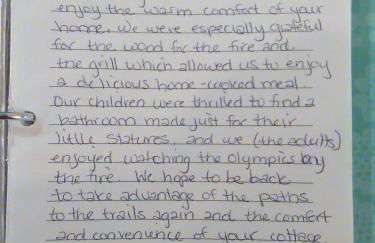 enjoy the warm comfort of your
home. We were especially grateful
for the wood for the fire and
the grill which allowed us to enjoy
a delicious home-cooked meal.
Our children were thrilled to find a
bathroom made just for their
little statures, and we (the adults)
enjoyed watching the Olympics by
the fire. We hope to be back
to take advantage of the paths
to the trails again and the comfort
and convenience of your cottage.